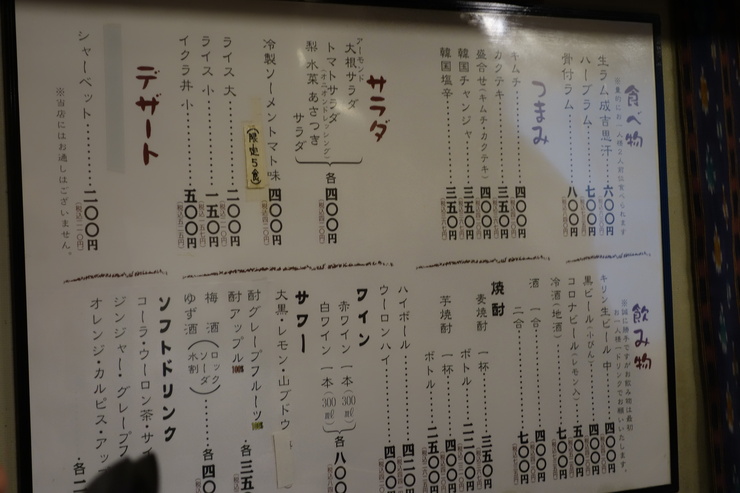 食べ物
生ラム成吉思汗 六〇〇円
ハーブラム 七〇〇円
骨付ラム 八〇〇円
つまみ
キムチ 四〇〇円
カクテキ 三五〇円
盛合せ(キムチ・カクテキ) 四〇〇円
韓国チャンジャ 三五〇円
韓国塩辛 三五〇円
サラダ
アーモンド
大根サラダ
トマトサラダ
梨 水菜 あさつき
サラダ
各 四〇〇円
冷製ソーメントマト味 四〇〇円
(限定5食)
ライス 大 二〇〇円
ライス 小 一五〇円
イクラ丼 小 五〇〇円
デザート
シャーベット 二〇〇円
※当店にはお通しはございません。
飲み物
※誠に勝手ですがお飲み物は最初
お一人様一ドリンクでお願いいたします。
キリン生ビール 中 四〇〇円
黒ビール(小びん) 四〇〇円
コロナビール(レモン入) 五〇〇円
冷酒(地酒) 七〇〇円
酒 一合 四〇〇円
二合 七〇〇円
焼酎
麦焼酎 一杯 三五〇円
ボトル 二二〇〇円
芋焼酎 一杯 四〇〇円
ボトル 二五〇〇円
ハイボール
ウーロンハイ
ワイン
赤ワイン 一本(300㎖)
白ワイン 一本(300㎖)
各 八〇〇
サワー
大黒・レモン・山ブドウ
酎グレープフルーツ
酎アップル
各 三五
梅酒(ロック ソーダ 水割)
ゆず酒
各 四〇
ソフトドリンク
コーラ・ウーロン茶・サイ
ジンジャー・グレープフ
オレンジ・カルピス・アッ
各 二